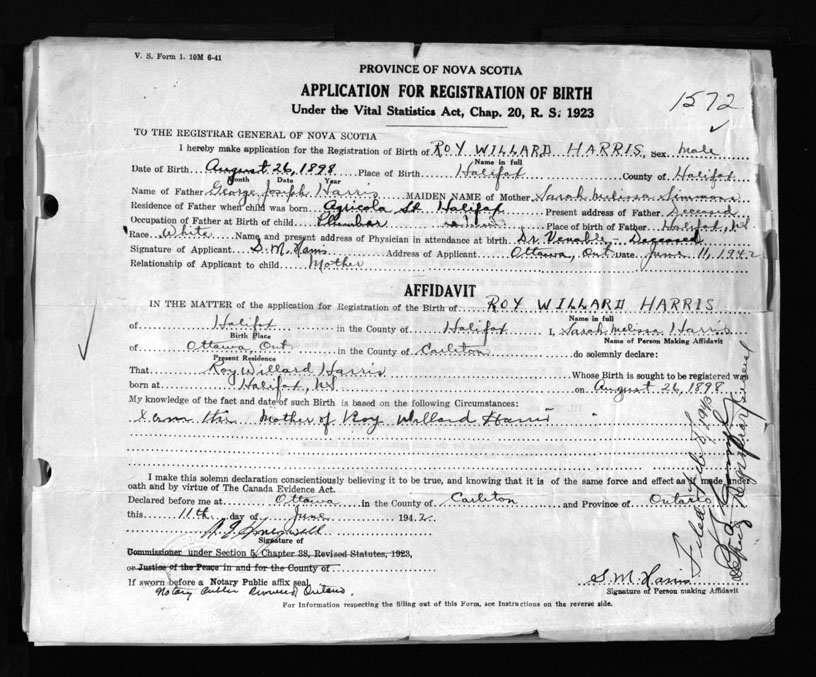 V. S. Form 1. 10M 6-41
PROVINCE OF NOVA SCOTIA
APPLICATION FOR REGISTRATION OF BIRTH
Under the Vital Statistics Act, Chap. 20, R. S. 1923
1572
TO THE REGISTRAR GENERAL OF NOVA SCOTIA
I hereby make application for the Registration of Birth of ROY WILLARD HARRIS, Sex male
Name in full
Date of Birth August 26, 1898 Place of Birth Halifax County of Halifax
Month Date Year
Name of Father George Joseph Harris MAIDEN NAME of Mother Sarah Melissa Simmons
Residence of Father when child was born Agricola St Halifax Present address of Father Deceased
Occupation of Father at Birth of child Plumber Place of birth of Father Halifax, NS
Race White Name and present address of Physician in attendance at birth Dr Venables - Deceased
Signature of Applicant S. M. Harris Address of Applicant Ottawa, Ont Date June 11, 1942
Relationship of Applicant to child Mother
AFFIDAVIT
IN THE MATTER of the application for Registration of the Birth of ROY WILLARD HARRIS
Name in full
of Halifax in the County of Halifax I, Sarah Melissa Harris
Birth Place Name of Person Making Affidavit
of Ottawa, Ont in the County of Carleton do solemnly declare:
Present Residence
That Roy Willard Harris Whose Birth is sought to be registered was
born at Halifax, NS on August 26, 1898
My knowledge of the fact and date of such Birth is based on the following Circumstances:
I am the Mother of Roy Willard Harris
I make this solemn declaration conscientiously believing it to be true, and knowing that it is of the same force and effect as if made under
oath and by virtue of The Canada Evidence Act.
Declared before me at Ottawa in the County of Carleton and Province of Ontario
this 11th day of June 1942
Signature of
Commissioner under Section 5, Chapter 38, Revised Statutes, 1923,
or Justice of the Peace in and for the County of
If sworn before a Notary Public affix seal
Notary Public Ontario.
S. M. Harris
Signature of Person making Affidavit
For Information respecting the filling out of this Form, see Instructions on the reverse side.
Filed Feb 8, 1943
Deputy Registrar General